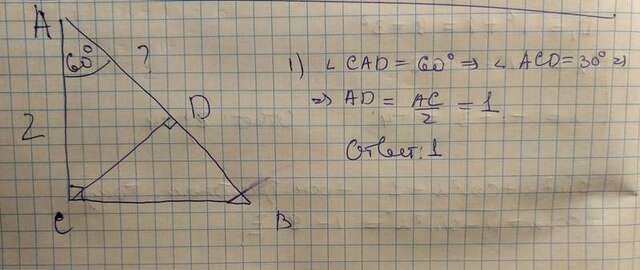 A
60° ?
2
D
C
B
1) ∠ CAD = 60° ⇒ ∠ ACD = 30° ⇒
⇒ AD = AC/2 = 1
Ответ: 1